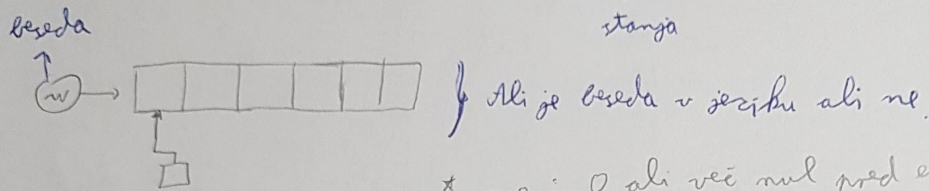 beseda
stanja
w
Ali je beseda v jeziku ali ne.
* 0 ali več nul pred